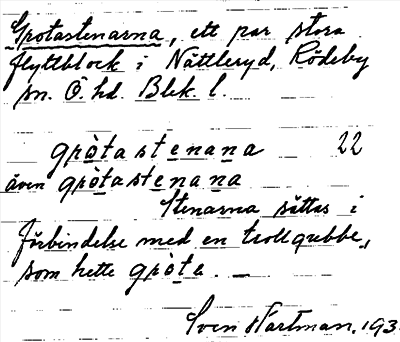 Grotastenarna, ett par stora
flyttblock i Nättleryd, Rödeby
sn. Ö. hd. Blek. l.
gròtastenana 22
även gròtastenana
Stenarna sättas i
förbindelse med en trollgubbe,
som hette gròta. —
Sven Hartman. 193